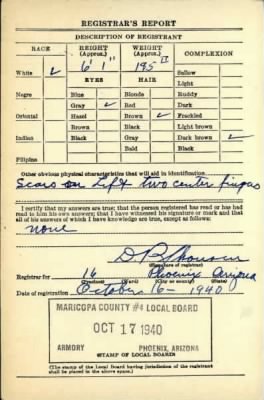 REGISTRAR'S REPORT
DESCRIPTION OF REGISTRANT
RACE HEIGHT (Approx.) WEIGHT (Approx.) COMPLEXION
White ✓ 6' 1" 195 Sallow
EYES HAIR Light
Negro Blue Blonde Ruddy
Gray ✓ Red Dark
Oriental Hazel Brown ✓ Freckled
Brown Black Light brown
Indian Black Gray Dark brown ✓
Bald Black
Filipino
Other obvious physical characteristics that will aid in identification
Scars on Left two center fingers
I certify that my answers are true; that the person registered has read or has had
read to him his own answers; that I have witnessed his signature or mark and that
all of his answers of which I have knowledge are true, except as follows:
none
(Signature of registrar)
Registrar for 16 Phoenix Arizona
(Precinct) (Ward) (City or county) (State)
Date of registration October 16 - 1940
MARICOPA COUNTY #4 LOCAL BOARD
OCT 17 1940
ARMORY PHOENIX, ARIZONA
(STAMP OF LOCAL BOARD)
(The stamp of the Local Board having jurisdiction of the registrant
shall be placed in the above space.)